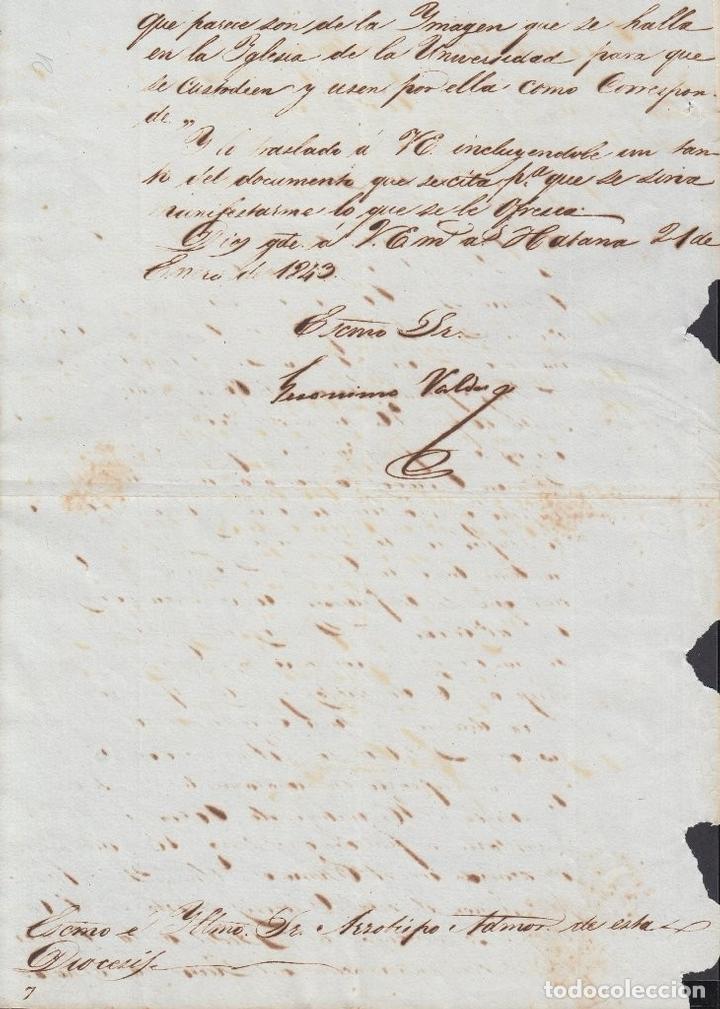 que parece son de la Ymagen que se halla
en la Yglesia de la Universidad para que
se custodien y usen por ella como Correspon-
de„
Y lo traslado á VE. incluyendole un tan-
to del documento que se cita pª que se sirva
manifestarme lo que se le Ofresca.
Dios gde. á V.E. m.s a.s Habana 21 de
Enero de 1843.
Escmo Sr.
Geronimo Valdes
Escmo é Yltmo. Sr. Arzobispo Admor. de esta
Diocesis
7
todocoleccion